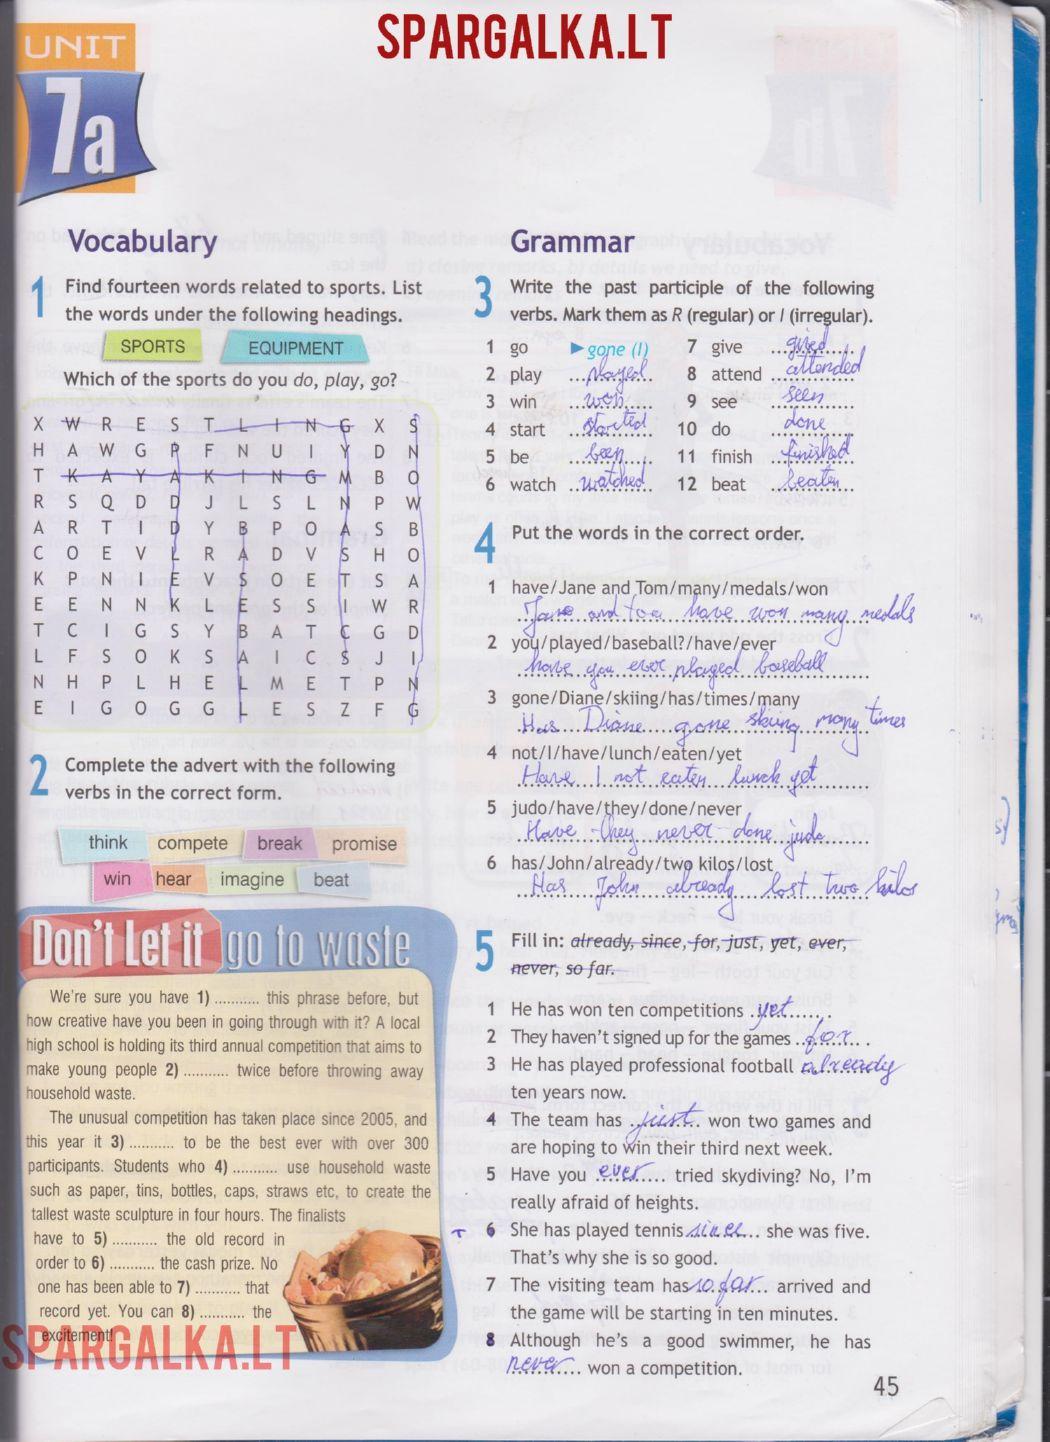 SPARGALKA.LT
UNIT
7a
Vocabulary
1 Find fourteen words related to sports. List
the words under the following headings.
SPORTS EQUIPMENT
Which of the sports do you do, play, go?
X W R E S T L I N G X S
H A W G P F N U I Y D N
T K A Y A K I N G M B O
R S Q D D J L S L N P W
A R T I D Y B P O A S B
C O E V L R A D V S H O
K D N I E V S O E T S A
E E N N K L E S S I W R
T C I G S Y B A T C G D
L F S O K S A I C S J I
N H P L H E L M E T P N
E I G O G G L E S Z F G
2 Complete the advert with the following
verbs in the correct form.
think compete break promise
win hear imagine beat
Don't Let it go to waste
We're sure you have 1) .......... this phrase before, but
how creative have you been in going through with it? A local
high school is holding its third annual competition that aims to
make young people 2) .......... twice before throwing away
household waste.
The unusual competition has taken place since 2005, and
this year it 3) .......... to be the best ever with over 300
participants. Students who 4) .......... use household waste
such as paper, tins, bottles, caps, straws etc, to create the
tallest waste sculpture in four hours. The finalists
have to 5) .......... the old record in
order to 6) .......... the cash prize. No
one has been able to 7) .......... that
record yet. You can 8) .......... the
excitement!
SPARGALKA.LT
Grammar
3 Write the past participle of the following
verbs. Mark them as R (regular) or I (irregular).
1 go ▶ gone (I) 7 give
2 play played 8 attend attended
3 win won 9 see seen
4 start started 10 do done
5 be been 11 finish finished
6 watch watched 12 beat beaten
4 Put the words in the correct order.
1 have/Jane and Tom/many/medals/won
Jane and Tom have won many medals
2 you/played/baseball?/have/ever
have you ever played baseball
3 gone/Diane/skiing/has/times/many
Has Diane gone skiing many times
4 not/I/have/lunch/eaten/yet
Have I not eaten lunch yet
5 judo/have/they/done/never
Have they never done judo
6 has/John/already/two kilos/lost
Has John already lost two kilos
5 Fill in: already, since, for, just, yet, ever,
never, so far.
1 He has won ten competitions yet.
2 They haven't signed up for the games for.
3 He has played professional football already
ten years now.
4 The team has just won two games and
are hoping to win their third next week.
5 Have you ever tried skydiving? No, I'm
really afraid of heights.
6 She has played tennis since she was five.
That's why she is so good.
7 The visiting team has so far arrived and
the game will be starting in ten minutes.
8 Although he's a good swimmer, he has
never won a competition.
45